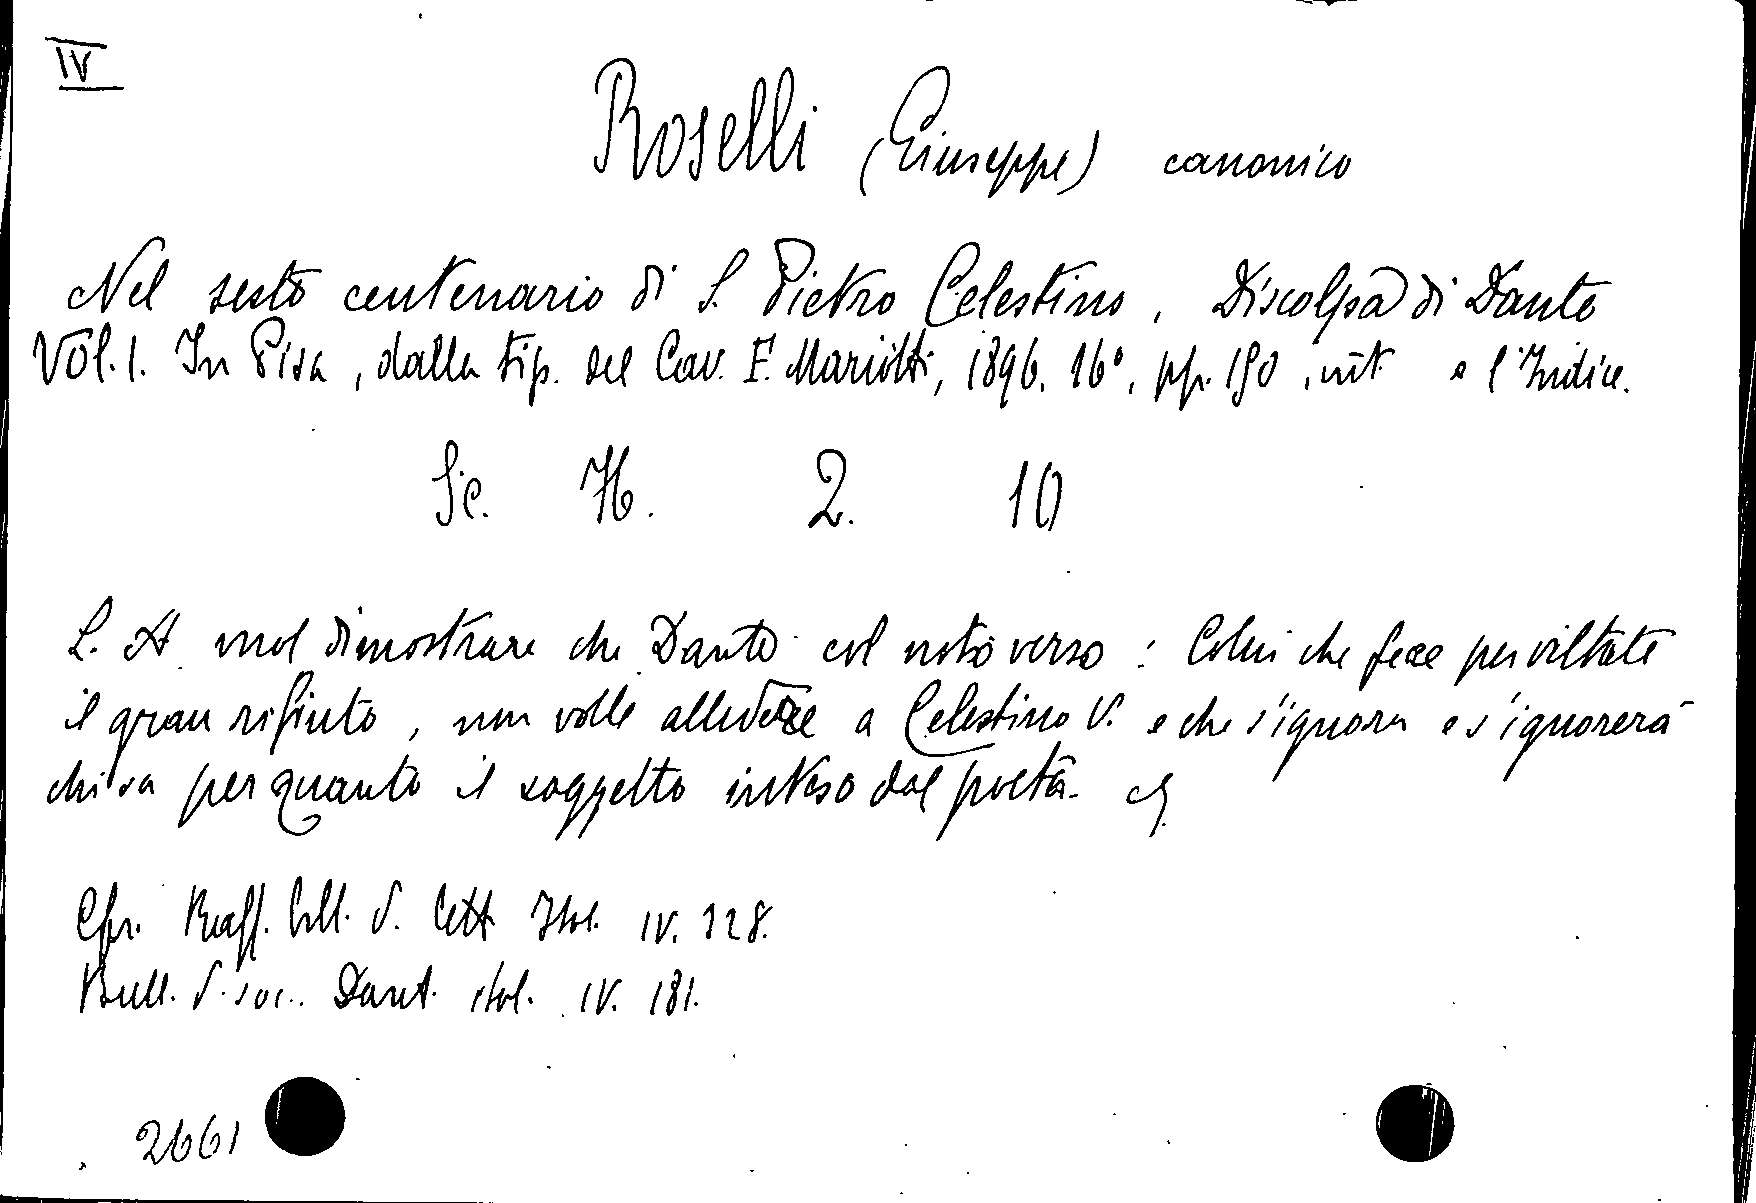 IV
Roselli (Giuseppe) canonico
Nel sesto centenario di S. Pietro Celestino. Discolpa di Dante
Vol. 1. In Pisa, dalla tip. del Cav. F. Mariotti, 1896. 16°, pp. 190, e l'Indice.
Sc. H. 2. 10
L. A. vuol dimostrare che Dante col noto verso: Colui che fece per viltate
il gran rifiuto, non volle alludere a Celestino V. e che s'ignora e s'ignorerà
chi sa per quanto il soggetto inteso dal poeta.
Cfr. Rass. bibl. d. lett. Ital. IV. 328.
Bull. d. soc. Dant. ital. IV. 181.
2661